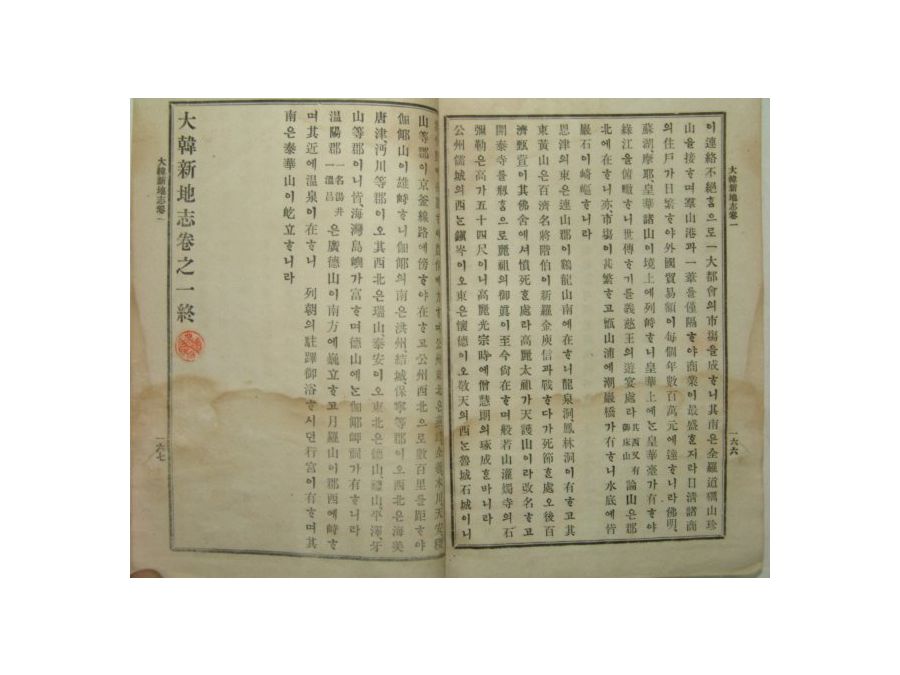 大韓新地志卷一
一六六
이連絡不絶홈으로一大都會의市場을成하니其南은全羅道礪山珍
山을接하며羣山港과一葦를僅隔하야商業이最盛혼지라日淸諸商
의住戶가日繁하야外國貿易額이每個年數百萬元에達하니라佛明、
蘇湖摩耶皇華諸山이境上에列峙하니皇華上에는皇華臺가有하야
錄江을俯瞰하니世傳하기를義慈王의遊宴處라其西又有御床山論山은郡
北에在하니亦市場이甚繁하고甑山浦에潮巖橋가有하니水底에皆
巖石이崎嶇하니라
恩津의東은連山郡이鷄龍山南에在하니龍泉洞鳳林洞이有하고其
東黃山은百濟名將階伯이新羅金庾信과戰하다가死節혼處오後百
濟甄萱이其佛舍에셔憤死혼處라高麗太祖가天護山이라改名하고
開泰寺를剏홈으로麗祖의御眞이至今尙在하며般若山灌燭寺의石
彌勒은高가五十四尺이니高麗光宗時에僧慧明의琢成혼바니라
公州儒城의西는鎭岑이오東은懷德이오敬天의西는魯城石城이니
山等郡이京釜線路에傍하야在하고公州西北으로數百里를距하야
伽倻山이雄峙하니伽倻의南은洪州結城、保寧等郡이오西北은海美
唐津、沔川等郡이오其西北은瑞山、泰安이오東北은德山、禮山、平澤、牙
山等郡이니皆海灣島嶼가富하며德山에는伽倻岬祠가有하니라
溫陽郡一名湯井一溫昌은廣德山이南方에巍立하고月羅山이郡西에峙하
며其近에溫泉이在하니 列朝의駐蹕御浴하시던行宮이有하며其
南은泰華山이屹立하니라
大韓新地志卷之一終
大韓新地志卷一
一六七